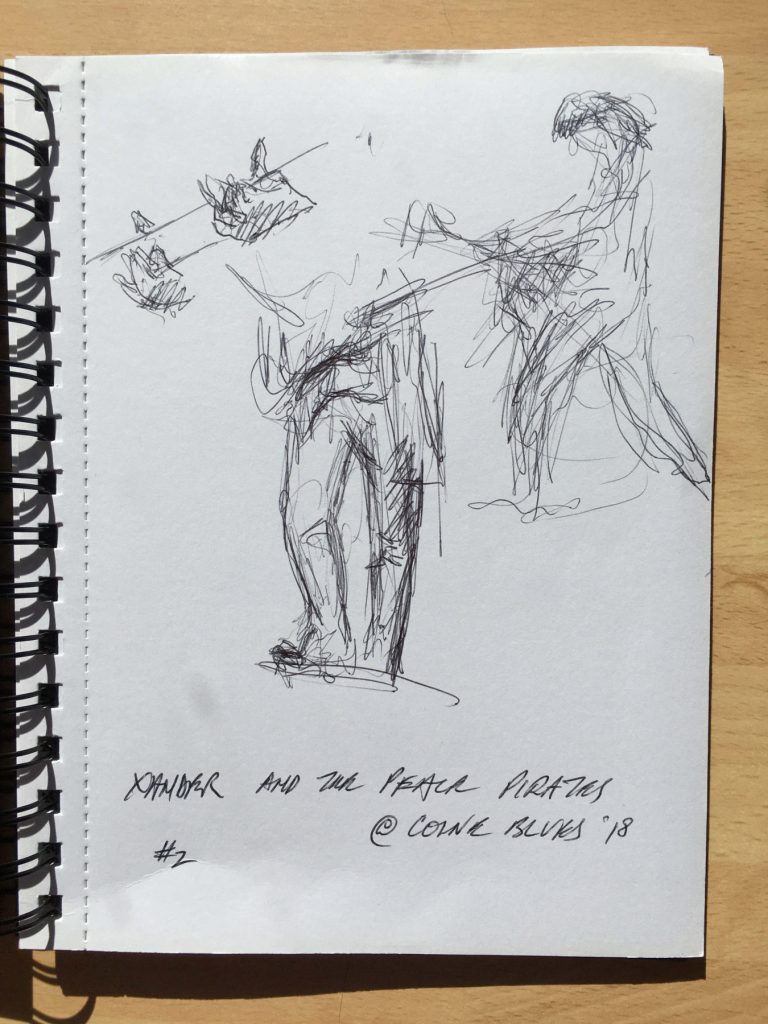 XANDER AND THE PEACE PIRATES
@ COLNE BLUES '18
#2